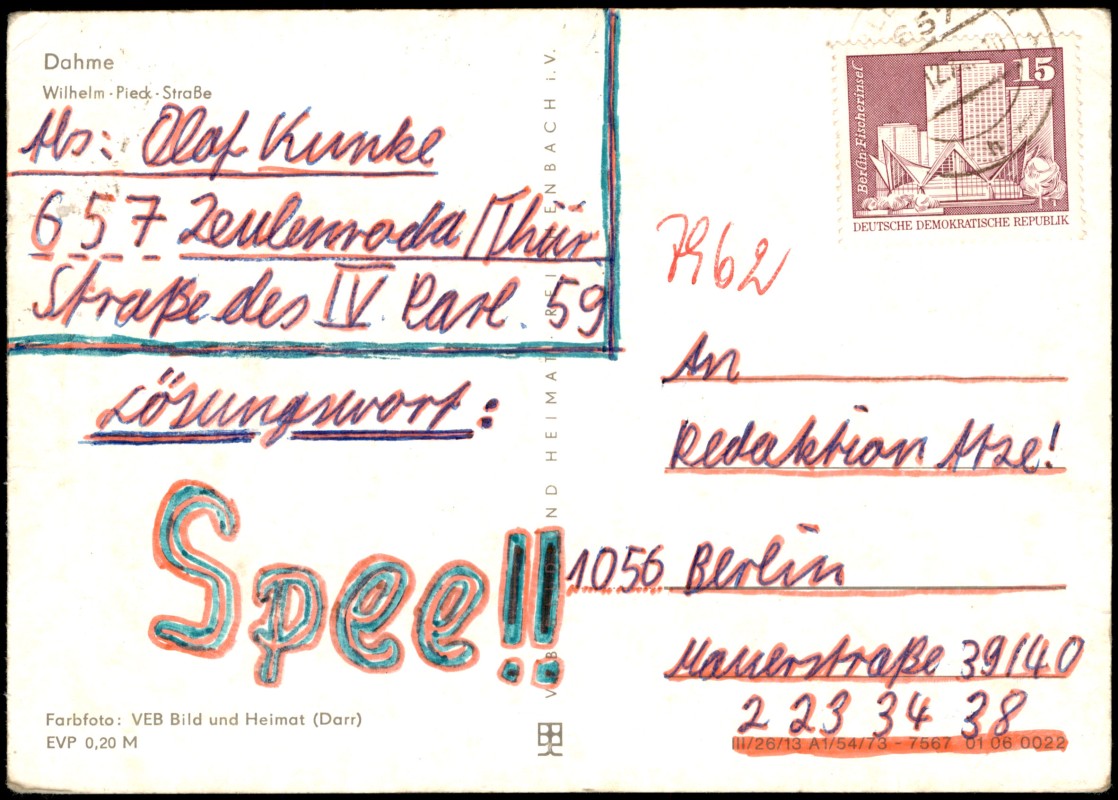 Dahme
Wilhelm-Pieck-Straße
Abs: Olaf Kunke
657 Zeulenroda/Thür
Straße des IV. Parl. 59
Lösungswort:
Spee!!
Farbfoto: VEB Bild und Heimat (Darr)
EVP 0,20 M
VEB BILD UND HEIMAT REICHENBACH i.V.
657
12.
h
Berlin-Fischerinsel
15
DEUTSCHE DEMOKRATISCHE REPUBLIK
7962
An
Redaktion Atze!
1056 Berlin
Mauerstraße 39/40
2 23 34 38
III/26/13 A1/54/73 - 7567 01 06 0022